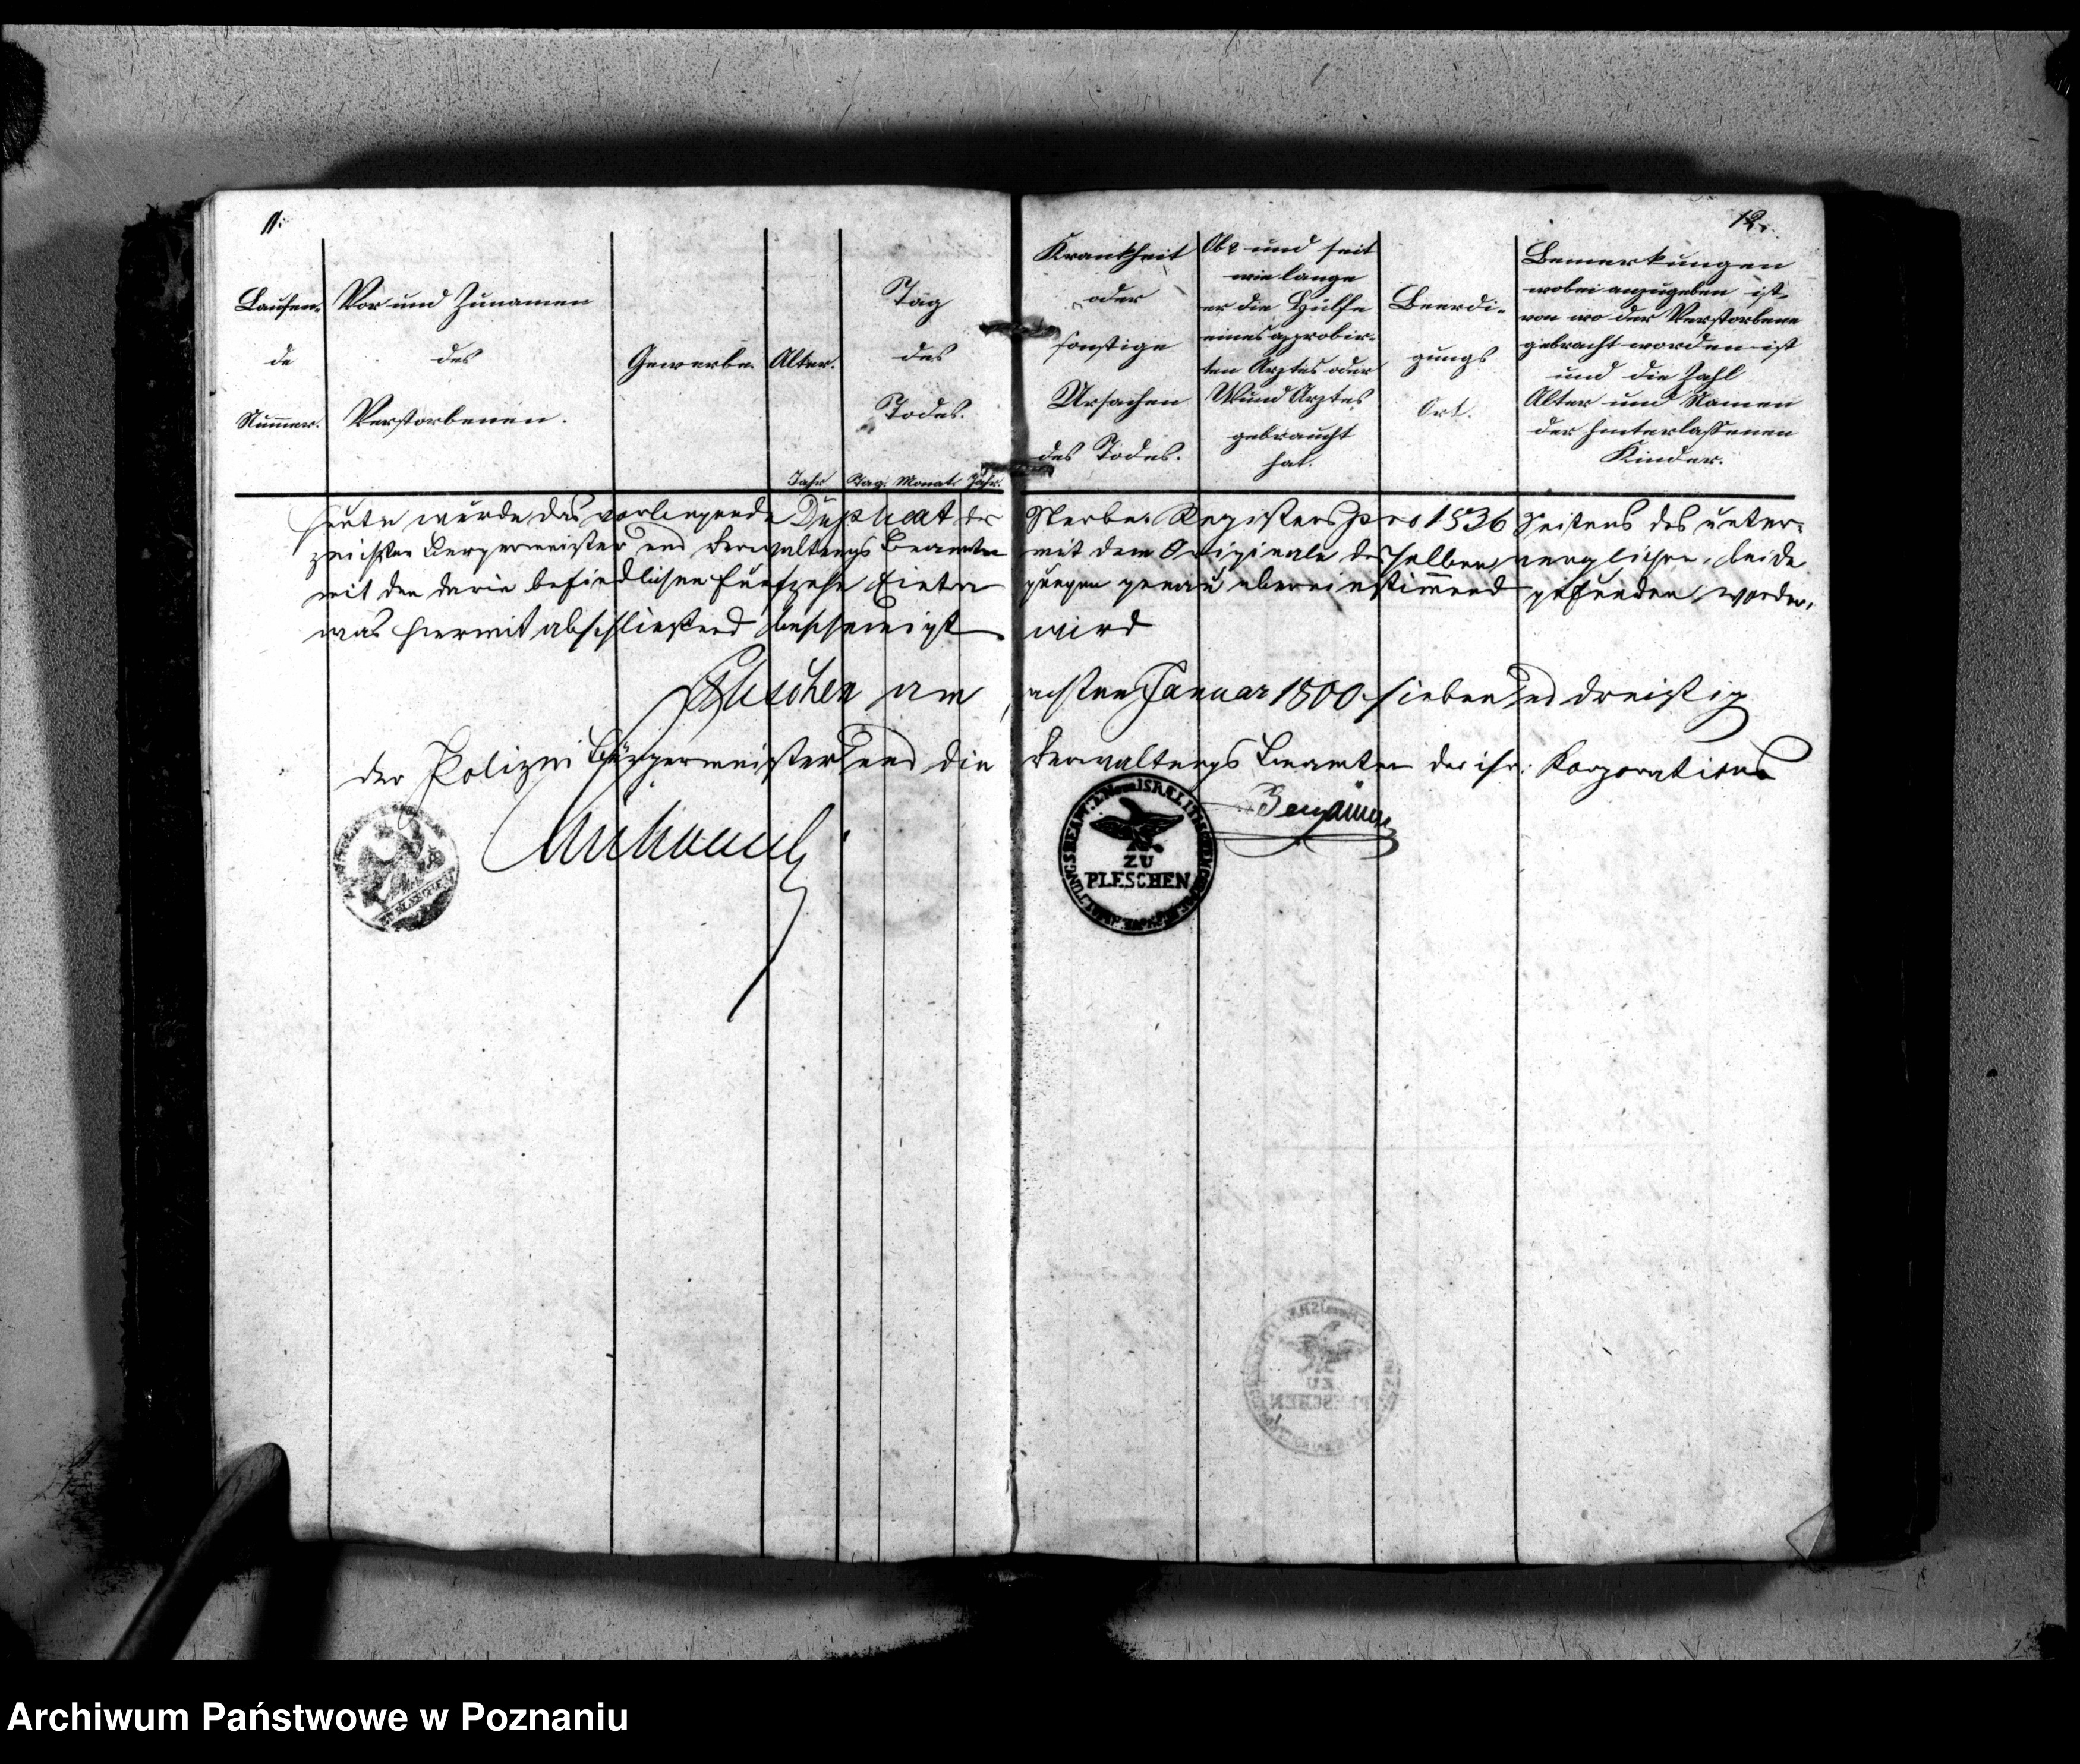 11.
Laufen-
de
Nummer.
Vor und Zunamen
des
Verstorbenen.
Gewerbe.
Alter.
Jahr
Tag
des
Todes.
Tag. Monat. Jahr.
12.
Krankheit
oder
sonstige
Ursachen
des Todes.
Ob und seit
wie lange
er die Hülfe
eines approbir-
ten Arztes oder
Wund Arztes
gebraucht
hat.
Beerdi-
gungs
Ort.
Bemerkungen
wobei anzugeben ist,
von wo der Verstorbene
gebracht worden ist
und die Zahl
Alter und Namen
der hinterlaßenen
Kinder.
Heute wurde das vorliegende Duplicat des Sterbe Registers pro 1836 Seitens des unter-
zeichten Bürgermeister und Verwaltungs Beamten mit dem Originale desselben verglichen, beide
mit den darin befindlichen fünfzehn Eintra gungen genau übereinstimmend gefunden worden,
was hiermit abschließend bescheinigt wird
Pleschen am achten Januar 1800 sieben und dreißig
der Polizei Bürgermeister und die Verwaltungs Beamten der isr: Korporations
ZU
PLESCHEN
Benjamin
ZU
PLESCHEN
Archiwum Państwowe w Poznaniu